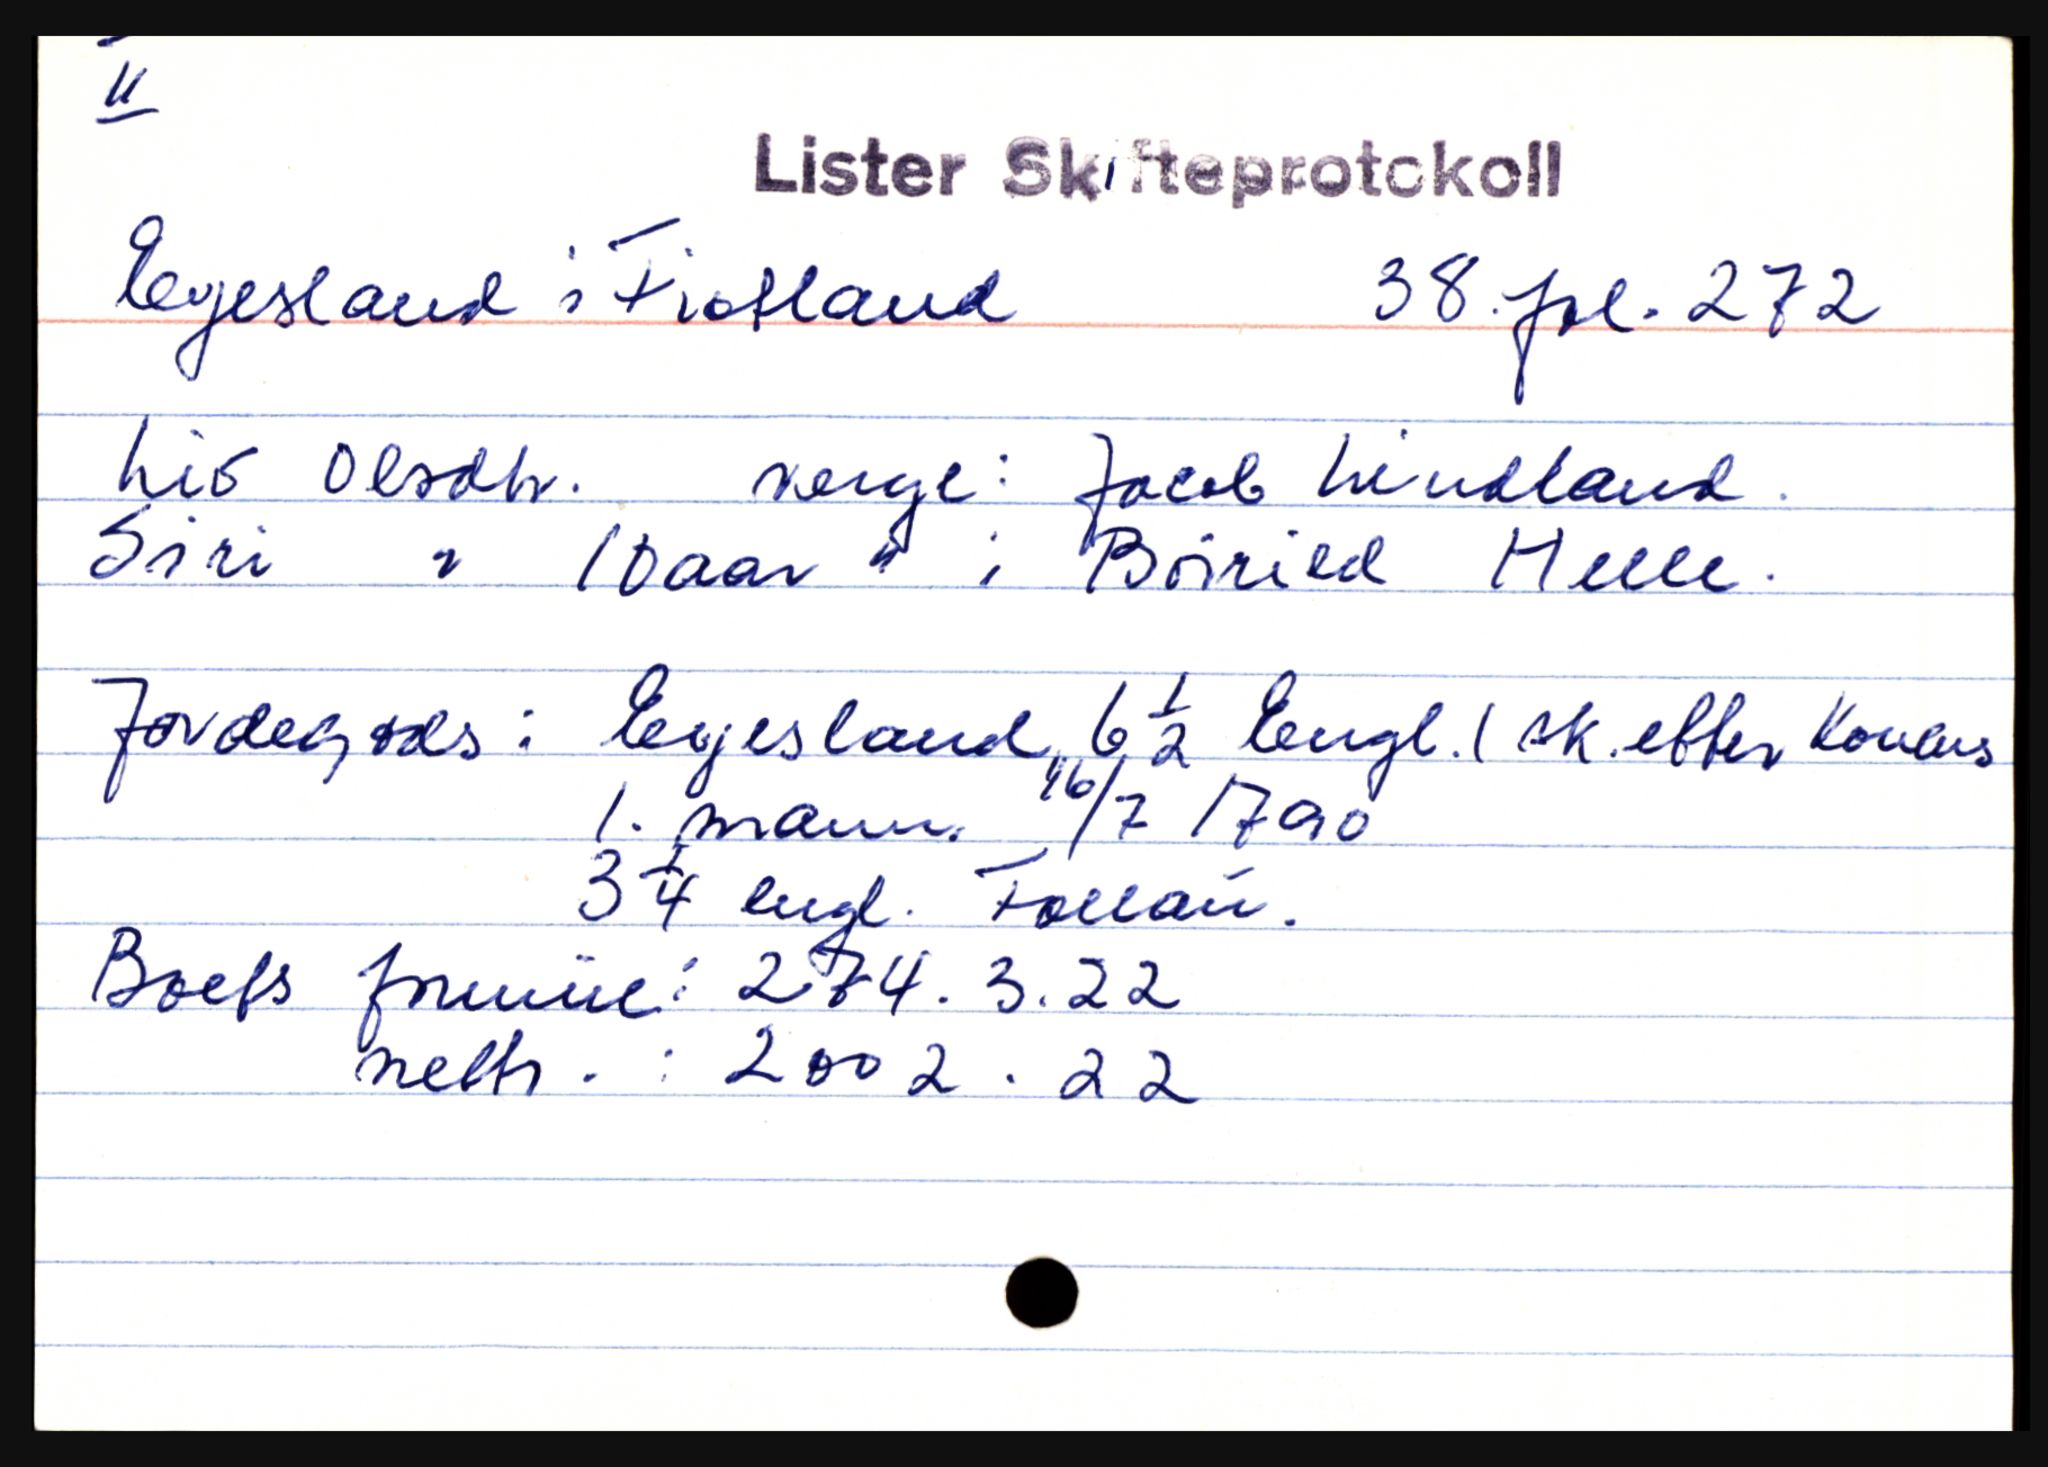 II
Lister Skifteprotokoll
Eyesland i Fiotland 38. fol. 272
Liv Olsdtr. verge: Jacob Lindland.
Siri " 10 aar " : Böirild Helle.
Jordegods: Eyesland, 6 1/2 Engl. 1 sk. efter Konens
1. mann. 16/7 1790
3 1/4 engl. Follaú.
Boets formúe: 274. 3. 22
netto. : 2002. 22